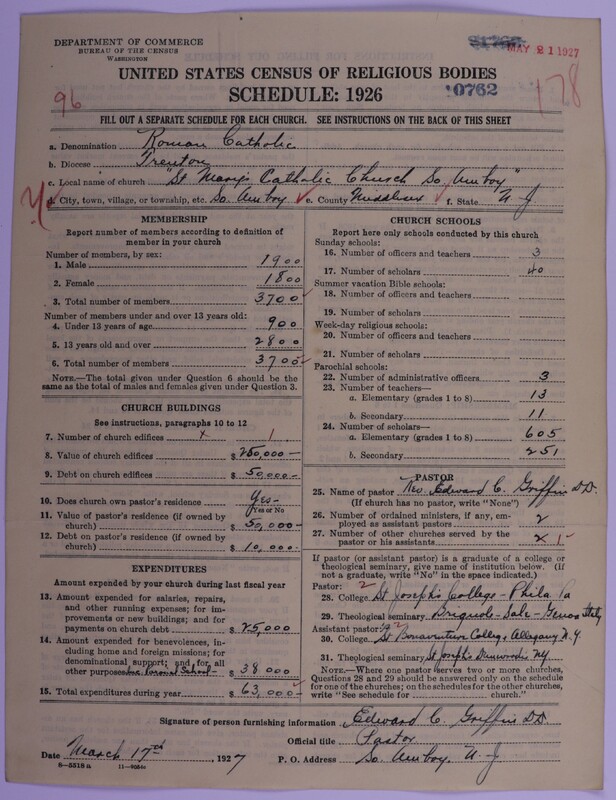 DEPARTMENT OF COMMERCE
BUREAU OF THE CENSUS
WASHINGTON
MAY 21 1927
UNITED STATES CENSUS OF RELIGIOUS BODIES
SCHEDULE: 1926
96
0762
178
FILL OUT A SEPARATE SCHEDULE FOR EACH CHURCH. SEE INSTRUCTIONS ON THE BACK OF THIS SHEET
a. Denomination Roman Catholic
b. Diocese Trenton
c. Local name of church "St Mary's Catholic Church So. Amboy"
d. City, town, village, or township, etc. So. Amboy e. County Middlesex f. State N. J
MEMBERSHIP
Report number of members according to definition of member in your church
Number of members, by sex:
1. Male 1900
2. Female 1800
3. Total number of members 3700
Number of members under and over 13 years old:
4. Under 13 years of age 900
5. 13 years old and over 2800
6. Total number of members 3700
NOTE.—The total given under Question 6 should be the same as the total of males and females given under Question 3.
CHURCH BUILDINGS
See instructions, paragraphs 10 to 12
7. Number of church edifices x 1
8. Value of church edifices $ 250,000 —
9. Debt on church edifices $ 50,000 —
10. Does church own pastor's residence? Yes —
Yes or No
11. Value of pastor's residence (if owned by church) $ 50,000 —
12. Debt on pastor's residence (if owned by church) $ 10,000.
EXPENDITURES
Amount expended by your church during last fiscal year
13. Amount expended for salaries, repairs, and other running expenses; for improvements or new buildings; and for payments on church debt $ 25,000
14. Amount expended for benevolences, including home and foreign missions; for denominational support; and for all other purposes School — $ 38000
15. Total expenditures during year $ 63,000
CHURCH SCHOOLS
Report here only schools conducted by this church
Sunday schools:
16. Number of officers and teachers 3
17. Number of scholars 40
Summer vacation Bible schools:
18. Number of officers and teachers
19. Number of scholars
Week-day religious schools:
20. Number of officers and teachers
21. Number of scholars
Parochial schools:
22. Number of administrative officers 3
23. Number of teachers—
a. Elementary (grades 1 to 8) 13
b. Secondary 11
24. Number of scholars—
a. Elementary (grades 1 to 8) 605
b. Secondary 251
PASTOR
25. Name of pastor Rev Edward C. Griffin DD.
(If church has no pastor, write "None")
26. Number of ordained ministers, if any, employed as assistant pastors 2
27. Number of other churches served by the pastor or his assistants x 1
If pastor (or assistant pastor) is a graduate of a college or theological seminary, give name of institution below. (If not a graduate, write "No" in the space indicated.)
Pastor: 2
28. College St Joseph's College — Phila Pa
29. Theological seminary Brignole-Sale — Genoa Italy
Assistant pastor: 2
30. College St Bonaventure College Allegany N.Y
31. Theological seminary St Joseph's Dunwoodie NY
NOTE.—Where one pastor serves two or more churches, Questions 28 and 29 should be answered only on the schedule for one of the churches; on the schedules for the other churches, write "See schedule for church."
Signature of person furnishing information Edward C. Griffin DD.
Official title Pastor
Date March 17th, 1927 P. O. Address So. Amboy. N. J
8—5518a 11—9056c